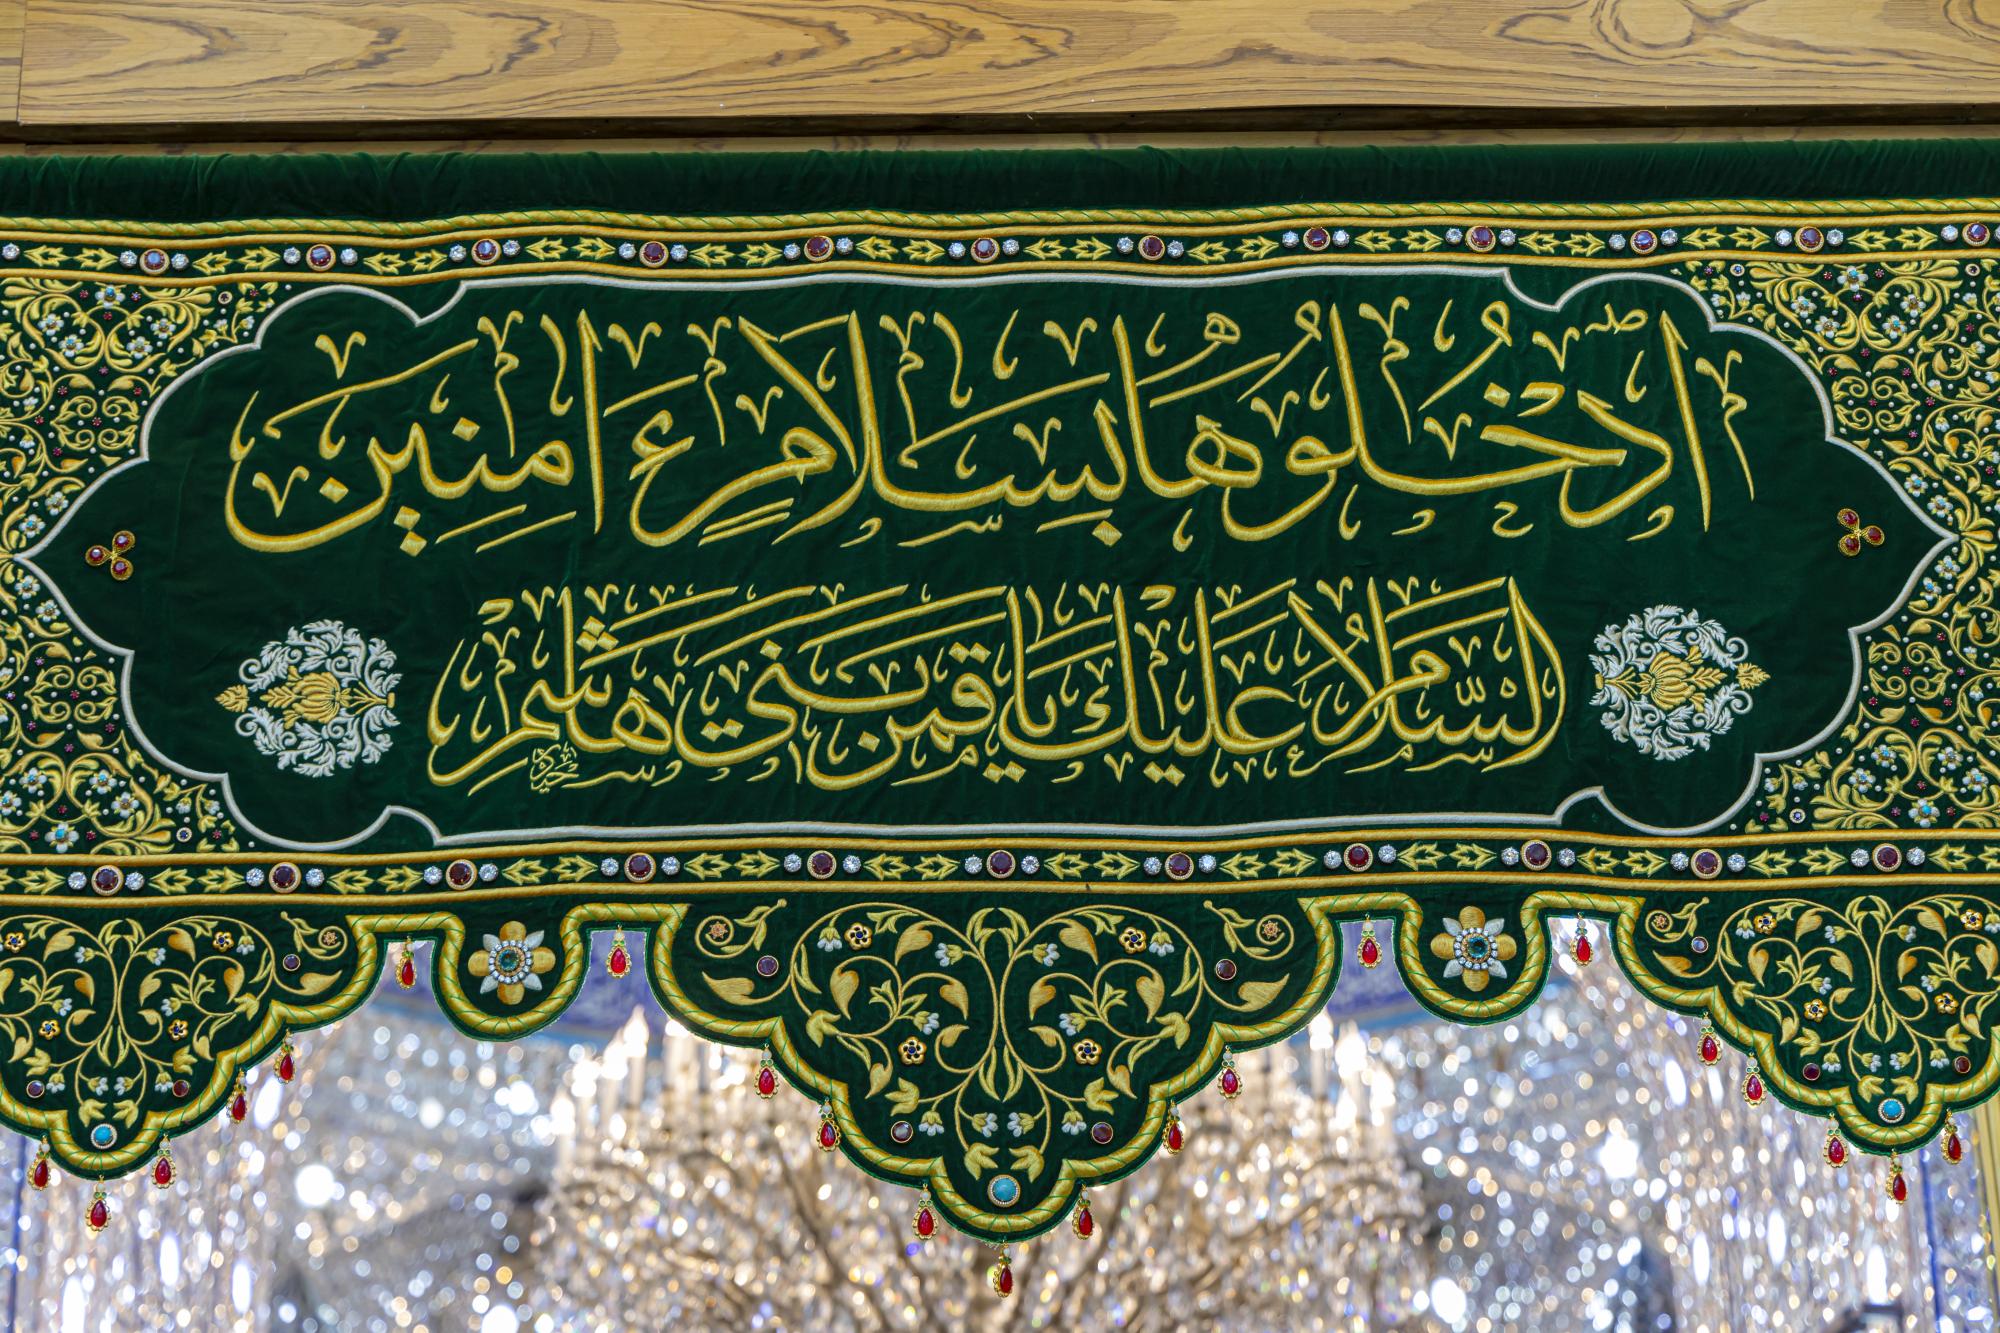 ٱدْخُلُوهَا بِسَلَامٍ ءَامِنِينَ
السَّلَامُ عَلَيْكَ يَا قَمَرَ بَنِي هَاشِمْ